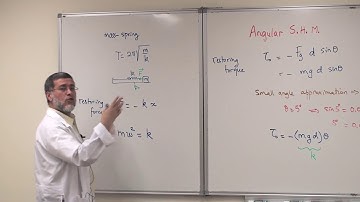 mass-spring
T = 2π√m/k
F
k
m
restoring force = - k x
mω² = k
Angular S.H.M.
restoring torque
τ₀ = - Fg d sinθ
= - mg d sinθ
Small angle approximation ⇒
θ = 5°
⇒ sin 5° = 0.0
5° = 0.0
τ₀ = -(mgd)θ
k